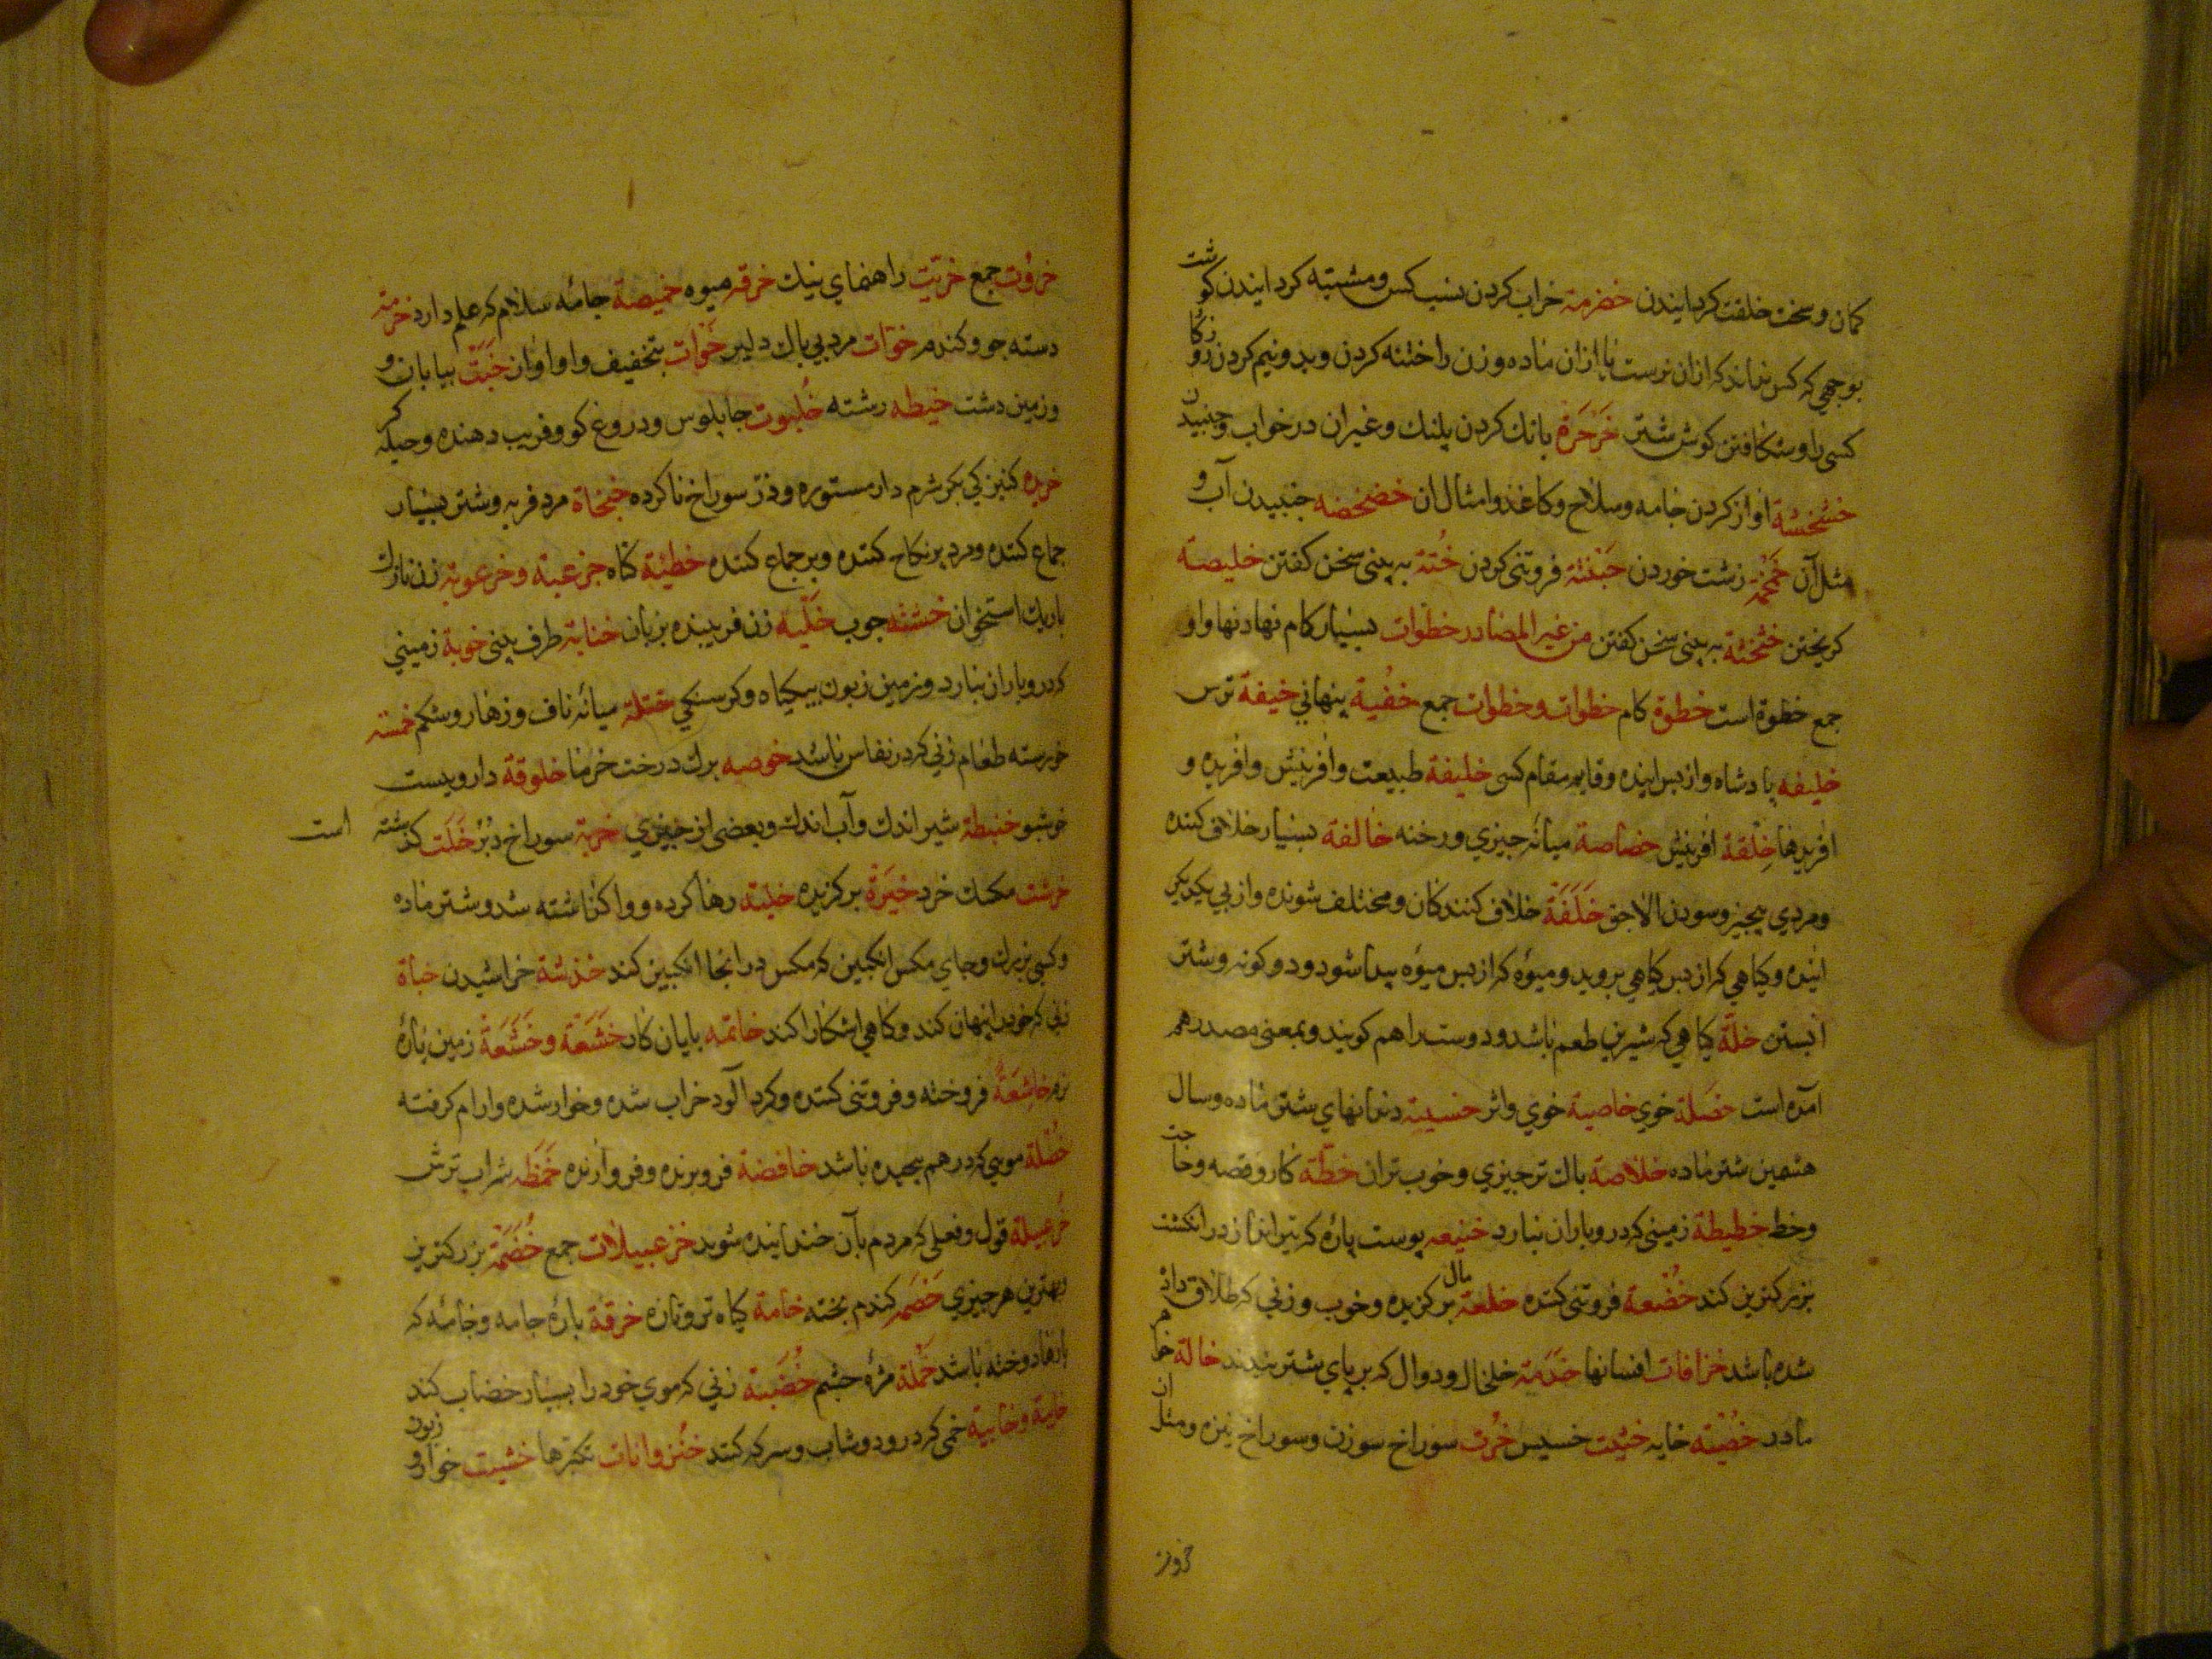 کمان و سخت خلقت کردانیدن خضرمة خراب کردن نسب کس و مشتبه کردانیدن کوشت
بوجهی که کس نداند که ازان نرست یا ازان ماده و زن را ختنه کردن و بدو نیم کردن
کسی را و شکافتن کوش شتر خَرخَرة بانك کردن پلنك و غیران در خواب و جنبیدن
خشخشة اواز کردن جامه و سلاح و کاغذ و امثال ان خضخضه جنبیدن آب و
مثل آن زشت خوردن فروتنی کردن خُنّة به بینی سخن کفتن خلیصة
کریختن خنخنة به بینی سخن کفتن من غیر المصادر خطوات بسیار کام نهادنها واو
جمع خطوة است خطوة کام خطوات و خطوات جمع خفیة پنهانی خیفة ترس
خلیفه پادشاه و از پس اینده و قایم مقام کسی خلیقة طبیعت و افرینش و افریده و
افریدها خِلقة افرینش خصاصة میانهٔ چیزی و رخنه خالفة بسیار خلاف کننده
و مردی بیچیز خَلَفَة خلاف کنندکان و مختلف شونده و از پی یکدیکر
اینده و کیاهی که از پس کیاهی بروید و میوهٔ که از پس میوهٔ پیدا شود و دو کونه و شتر
ابستن خلّة کیاهی که شیرین طعم باشد و دوست را هم کویند و بمعنی مصدر هم
آمده است خصلة خوی خاصیة خوی و اثر دندانهای شتر ماده و سال
هشتمین شتر ماده خلاصة پاك تر چیزی و خوب تر ان خطّة کار و قصه و حاجت
و خط خطیطة زمینی که درو باران نبارد پوست پارهٔ که تیرانداز در انکشت
بزرکترین کند خُضَعة فروتنی کننده خلعة مال برکزیده و خوب و زنی که طلاق داده
شده باشد خرافات افسانها خَدَمة خلخال و دوال که بر پای شتر بندند خالة خواهر
مادر خُصیَة خایه خسیس خُرت سوراخ سوزن و سوراخ تبره و مثل ان
خروت
خُروت جمع خرّیت راهنمای نیك خرفة میوه خمیصة جامهٔ سیاه که علم دارد خرمة
دسته جو و کندم خوّات مرد بی باك دلیر خَوَات بتخفیف واو اوازان خَبت بیابان و
و زمین دشت خیطه رشته خُلبوت چاپلوس و دروغ کو و فریب دهنده و حیله کر
خریده کنیزکی بکر شرم دار مستوره و در سوراخ ناکرده مرد فربه و شتر بسیار
جماع کننده و مرد پر نکاح کننده و پر جماع کننده خطیئة کناه خرعبة و خرعوبة زن نازك
باریك استخوان خشبة چوب زن فریبنده بزبان خنابة طرف بینی خوبة زمینی
که درو باران نبارد و زمین زبون بیکیاه و کرسنکی ختلة میانهٔ ناف و زهار و شکم خرسة
خرسته طعام زنی که در نفاس باشد خوصه برك درخت خرما خلوقة دارویست
خوشبو خبطة شیر اندك و آب اندك و بعضی از چیزی خربة سوراخ دُبُر خَلَت کذشته است
خرشت مکث خرد خیَرَة برکزیده خلیة رها کرده و وا کذاشته شد و شتر ماده
و کشی بزرك و جای مکس انکبین که مکس درانجا انکبین کند خدشة خراشیدن خبأة
زنی که خود را پنهان کند و کاهی اشکارا کند خاتمه پایان کار خَشَعَة و خَشعَة زمین پارهٔ
نرم خاشعة فروخته و فروتنی کننده و کرد آلود خراب شده و خوار شده و ارام کرفته
خُصلة مویی که در هم پیچیده باشد خافضة فروبرنده و فروآرنده خَمطة شراب ترش
خُزعبیلة قول و فعلی که مردم بآن خندانیده شوند خزعبیلات جمع خُضُمّة بزرکترین
و بهترین هر چیزی کندم پخته خامة کیاه تر و تازه خرقة پارهٔ جامه و جامهٔ که
پارها دوخته باشد خَملة مژهٔ چشم خُضَبة زنی که موی خود را بسیار خضاب کند
خابیة خمی که درو دوشاب و سرکه کنند خُنزوانات تکبرها خشیت خوار و زبون